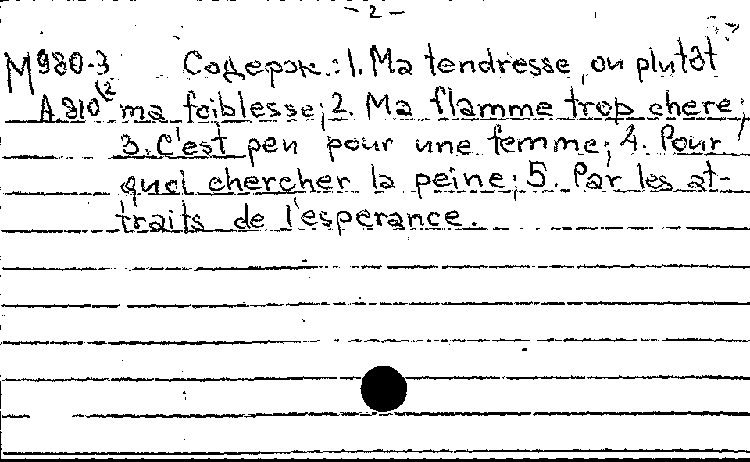 - 2 -
M 980-3 Содерж.: 1. Ma tendresse, ou plutôt
A 310 (2 ma foiblesse; 2. Ma flamme trop chere;
3. C'est peu pour une femme; 4. Pour
quoi chercher la peine; 5. Par les at-
traits de l'esperance.